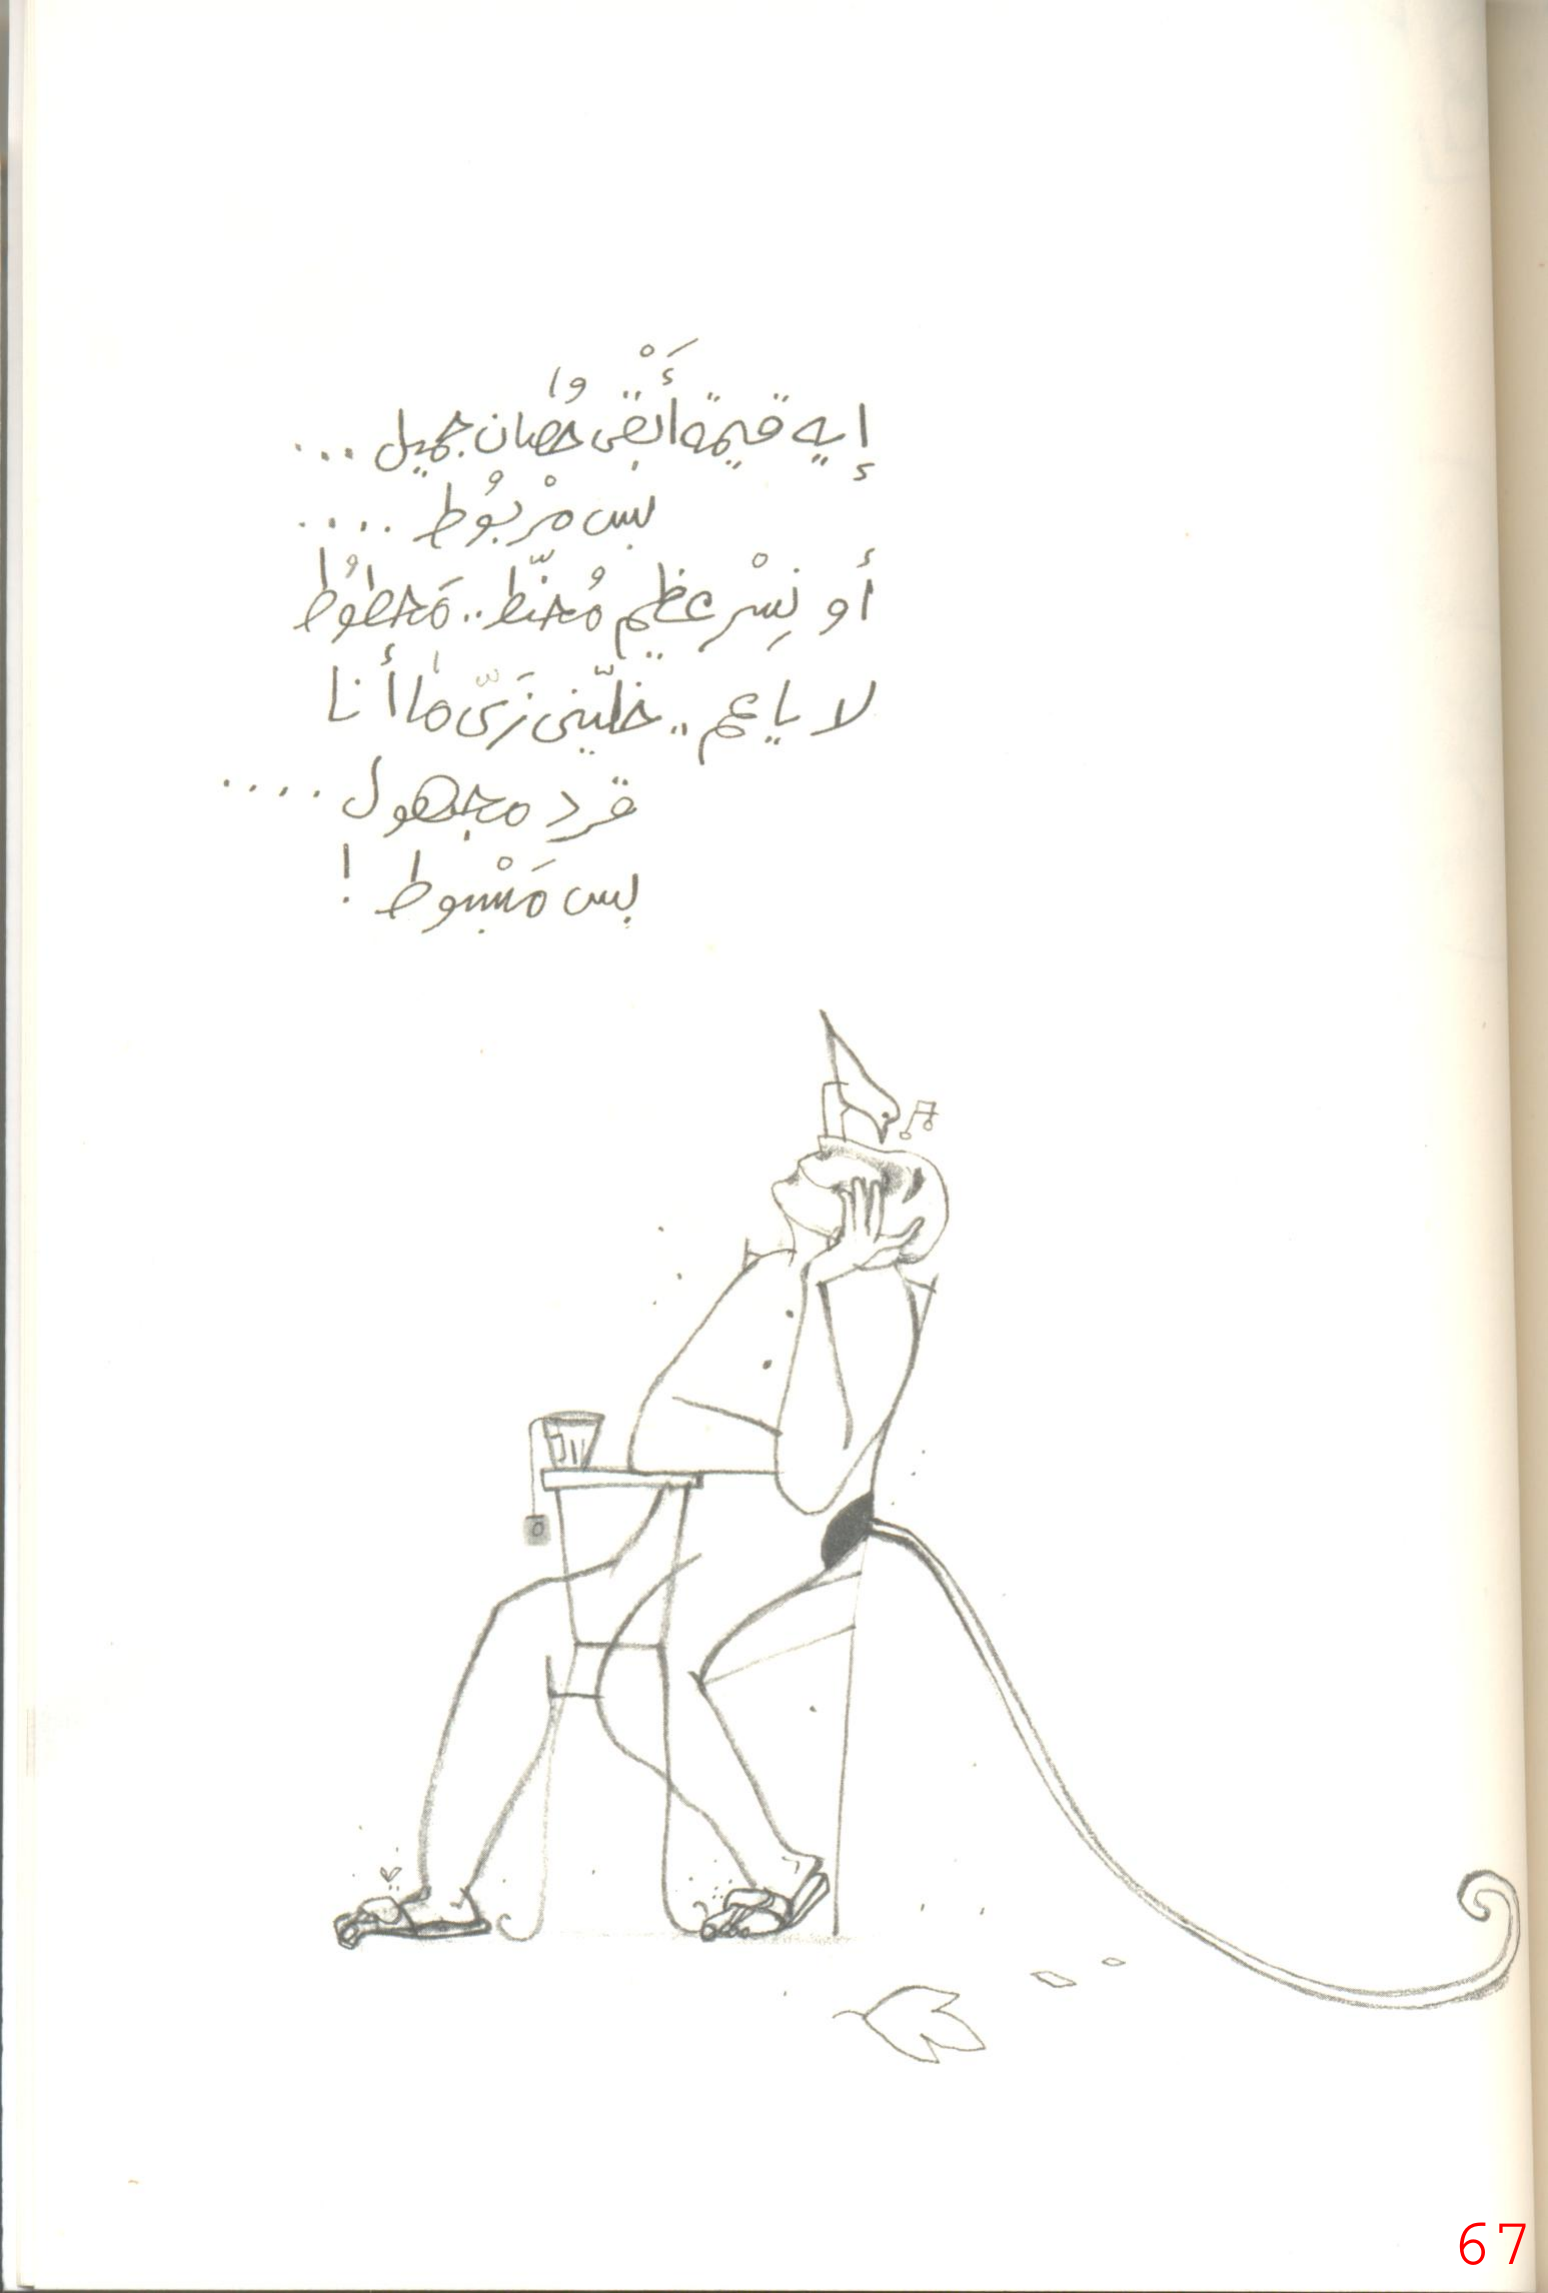 إيه قيمة أَبْقى حُصان جميل...
بس مرْبُوط ....
أو نِسْر عظيم مُحنّط.. مَحطوُط
لا يا عم.. خلّيني زَىّ ما أنا
قرد مجهول ....
بس مَبْسوط !
67